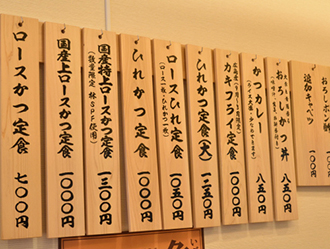 ロースかつ定食
七〇〇円
国産上ロースかつ定食
一〇〇〇円
国産特上ロースかつ定食
(数量限定 林SPF使用)
一三〇〇円
ひれかつ定食
一〇〇〇円
ロースひれ定食
(ロース一枚・ひれかつ一枚)
一〇五〇円
ひれかつ定食(大)
一二五〇円
カキフライ定食
一〇〇〇円
かつカレー
八五〇円
おろしかつ丼
八五〇円
追加キャベツ
一〇〇円